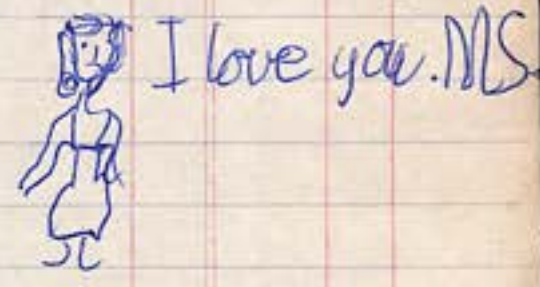 I love you. MS.